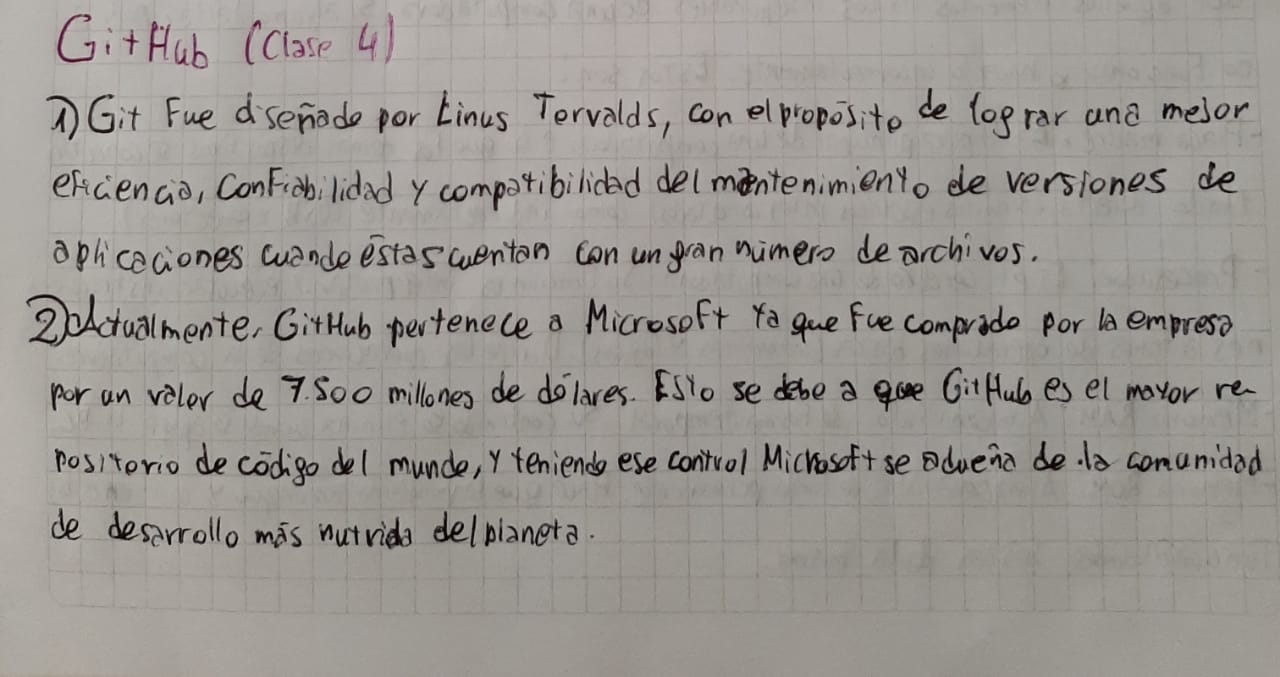 GitHub (Clase 4)
1) Git Fue diseñado por Linus Torvalds, con el propósito de lograr una mejor
eficiencia, Confiabilidad y compatibilidad del mantenimiento de versiones de
aplicaciones cuando éstas cuentan con un gran número de archivos.
2) Actualmente, GitHub pertenece a Microsoft ya que Fue comprado por la empresa
por un valor de 7.500 millones de dólares. Esto se debe a que GitHub es el mayor re-
positorio de código del mundo, y teniendo ese control Microsoft se adueña de la comunidad
de desarrollo más nutrida del planeta.